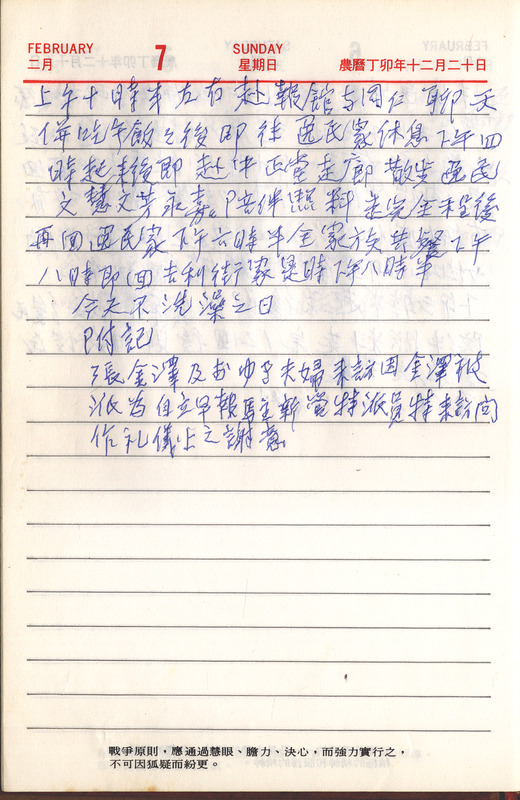 FEBRUARY 7 SUNDAY
二月 星期日 農曆丁卯年十二月二十日
上午十時半左右赴報館与同仁聊天
併吃午飯之後即往逸民家休息下午四
時起來後即赴中正堂走廊散步逸民
文慧文芳永嘉陪伴照料走完全程後
再回逸民家下午六時半全家族共餐下午
八時即回吉利街家是時下午八時半
今天不洗澡之日
附記
張金澤及お ゆ子夫婦來訪因金澤被
派為自立早報駐新 特派員特來訪問
作礼儀上之謝意
戰爭原則，應通過慧眼、膽力、決心，而強力實行之，
不可因狐疑而紛更。